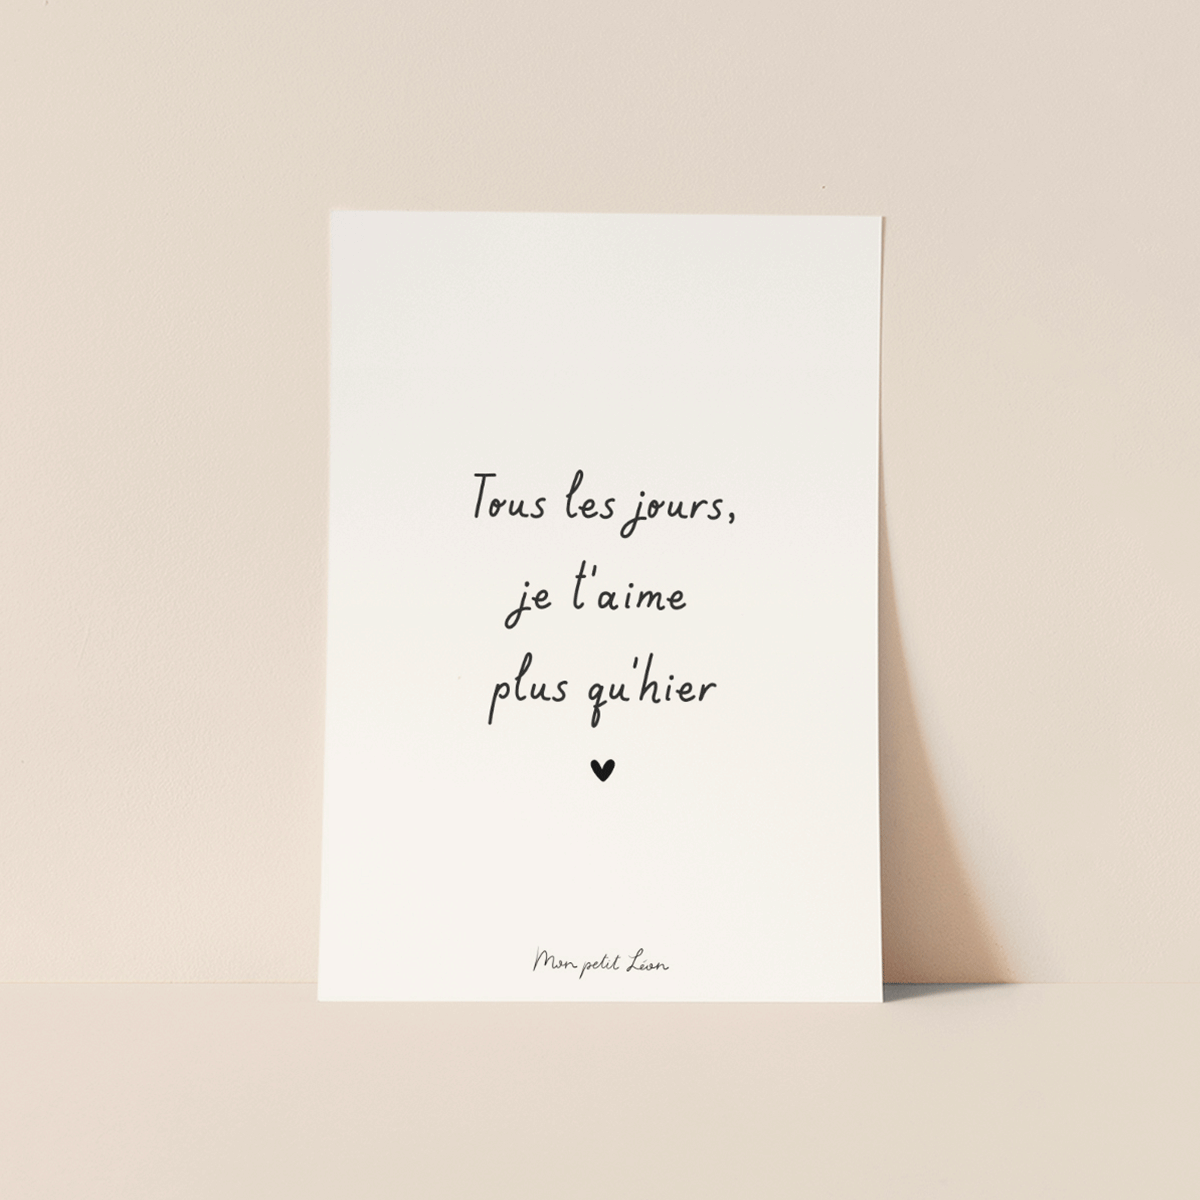 Tous les jours,
je t'aime
plus qu'hier
Mon petit Léon